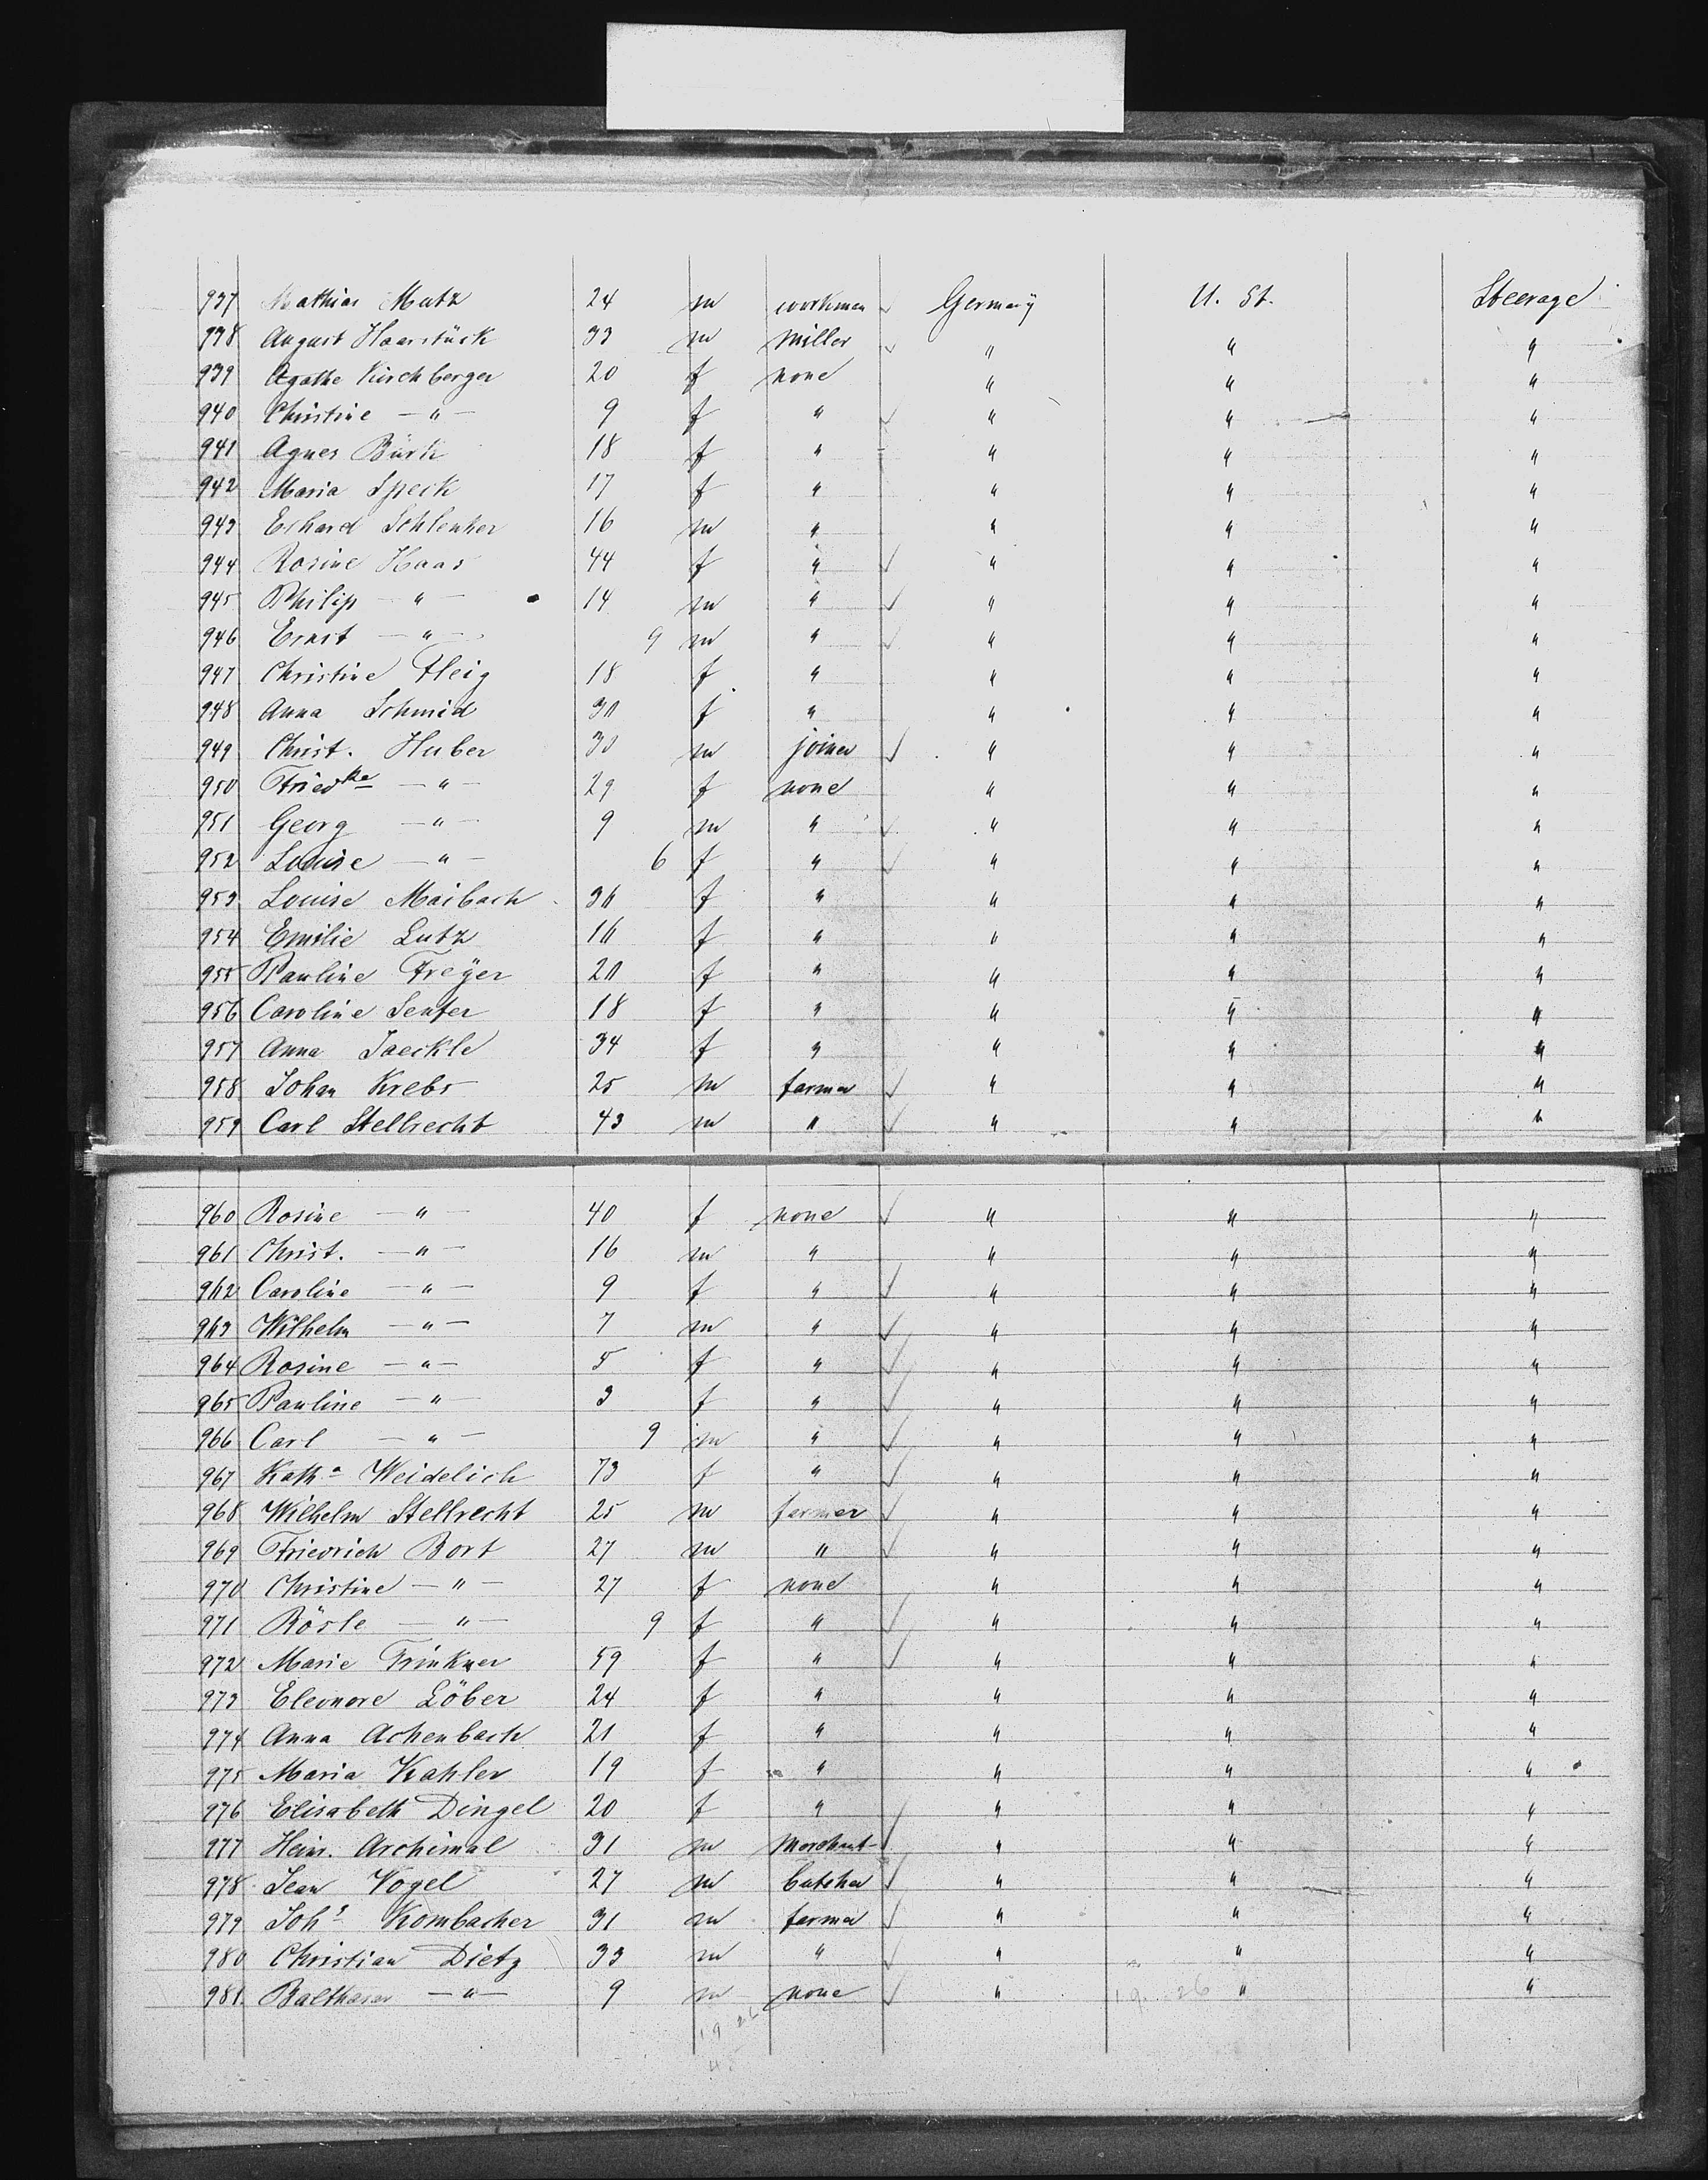 937 Mathias Mutz 24 m workman Germany U. St. Steerage
938 August Haarstück 33 m miller " " "
939 Agathe Kirchberger 20 f none " " "
940 Christine — " — 9 f " " " "
941 Agnes Bürk 18 f " " " "
942 Maria Speck 17 f " " " "
943 Erhard Schlenker 16 m " " " "
944 Rosine Haas 44 f " " " "
945 Philip — " — 14 m " " " "
946 Ernst — " — 9 m " " " "
947 Christine Fleig 18 f " " " "
948 Anna Schmid 30 f " " " "
949 Christ. Huber 30 m joiner " " "
950 Friedke — " — 29 f none " " "
951 Georg — " — 9 m " " " "
952 Louise — " — 6 f " " " "
953 Louise Maibach 36 f " " " "
954 Emilie Lutz 16 f " " " "
955 Pauline Freÿer 20 f " " " "
956 Caroline Senfer 18 f " " " "
957 Anna Jaeckle 34 f " " " "
958 Johan Krebs 25 m farmer " " "
959 Carl Stellrecht 43 m " " " "
960 Rosine — " — 40 f none " " "
961 Christ. — " — 16 m " " " "
962 Caroline — " — 9 f " " " "
963 Wilhelm — " — 7 m " " " "
964 Rosine — " — 5 f " " " "
965 Pauline — " — 3 f " " " "
966 Carl — " — 9 m " " " "
967 Katha Weidelich 73 f " " " "
968 Wilhelm Stellrecht 25 m farmer " " "
969 Friedrich Bort 27 m " " " "
970 Christine — " — 27 f none " " "
971 Rösle — " — 9 f " " " "
972 Marie Trinkner 59 f " " " "
973 Eleonore Löber 24 f " " " "
974 Anna Achenbach 21 f " " " "
975 Maria Kahler 19 f " " " "
976 Elisabeth Dingel 20 f " " " "
977 Heinr. Archimal 31 m Merchant " " "
978 Jean Vogel 27 m butcher " " "
979 Johs Kombacher 31 m farmer " " "
980 Christian Dietz 33 m " " " "
981. Balthasar — " — 9 m none " " "
19 26